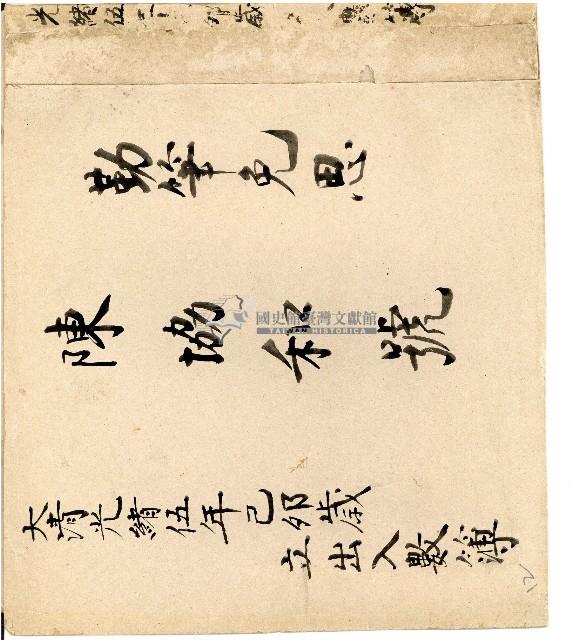 光緒伍
勤筆免思
陳協和號
國史館臺灣文獻館
TAIWAN HISTORICA
大清光緒伍年己卯歲
立出入數簿